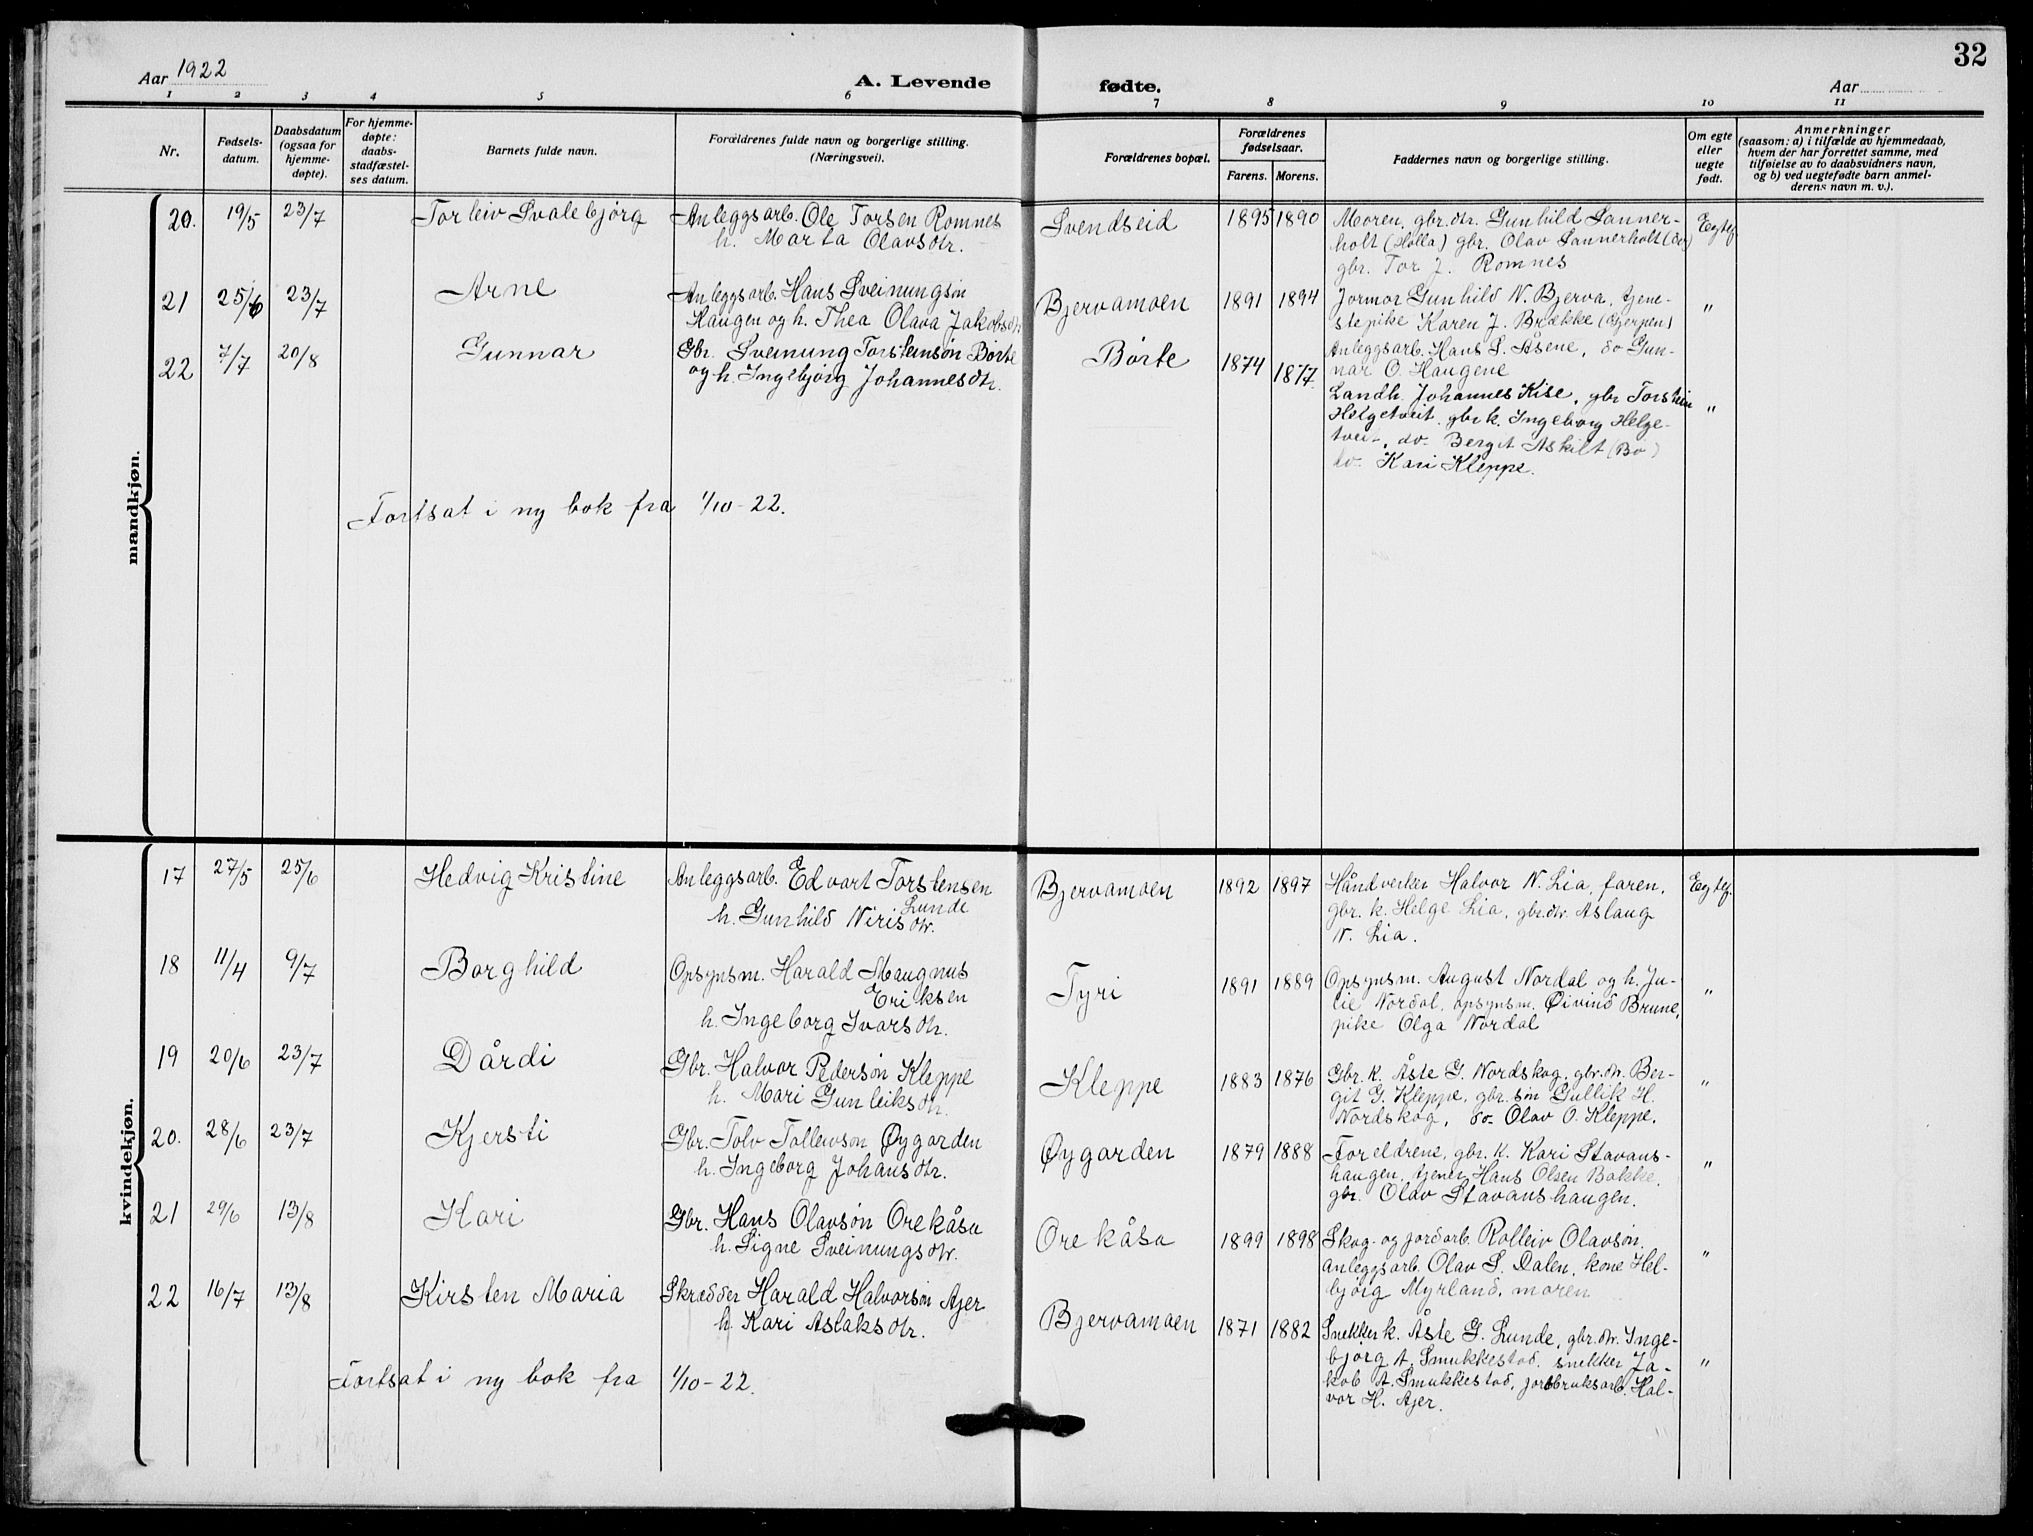 32
Aar 1922
A. Levende
fødte.
Aar
1 2 3 4 5 6 7 8 9 10 11
Nr.
Fødsels-
datum.
Daabsdatum
(ogsaa for
hjemme-
døpte).
For hjemme-
døpte:
daabs-
stadfæstel-
ses datum.
Barnets fulde navn.
Forældrenes fulde navn og borgerlige stilling.
(Næringsvei).
Forældrenes bopæl.
Forældrenes
fødselsaar.
Farens. Morens.
Faddernes navn og borgerlige stilling.
Om egte
eller
uegte
født.
Anmerkninger
(saasom: a) i tilfælde av hjemmedaab,
hvem der har forrettet samme, med
tilføielse av to daabsvidners navn,
og b) ved uegtefødte barn anmel-
derens navn m. v.).
mandkjøn.
20. 19/5 23/7 Torleiv Svalebjørg
Anleggsarb. Ole Torsen Romnes
h. Marta Olavsdtr.
Svendseid 1895 1890
Moren, gbr. dtr. Gunhild Sanner-
holt (Holla) gbr. Olav Sannerholt
gbr. Tor J. Romnes
Egtef.
21 25/6 23/7 Arne
Anleggsarb. Hans Sveinungsøn
Haugen og h. Thea Olava Jakobsdtr
Bjervamoen 1891 1894
Jormor Gunhild N. Bjerva, tjene-
stepike Karen J. Brække (Gjerpen)
Anleggsarb. Hans S. Åsene, do Gun-
nar O. Haugene
"
22 7/7 20/8 Gunnar
Gbr. Sveinung Torsteinsøn Børte
og h. Ingebjørg Johannesdtr.
Børte 1874 1877.
Landh. Johannes Kise, gbr Torstein
Helgetveit, gbr k. Ingeborg Helge-
tveit, do. Berget Askilt (Bø)
do. Kari Kleppe.
"
Fortsat i ny bok fra 1/10-22.
kvindekjøn.
17 27/5 25/6 Hedvig Kristine
Anleggsarb. Edvart Torstensen
Lunde
h. Gunhild Nirisdtr.
Bjervamoen 1892 1897
Håndverker Halvor N. Lia, faren,
gbr. k. Helge Lia, gbr. dtr. Aslaug
N. Lia.
Egtef.
18 11/4 9/7 Borghild
Opsynsm. Harald Maugnus
Eriksen
h. Ingeborg Ivarsdtr.
Tyri 1891 1889
Opsynsm. August Nordal og h. Ju-
lie Nordal, opsynsm. Øivind Brune,
pike Olga Nordal
"
19 20/6 23/7 Dårdi
Gbr. Halvor Pedersøn Kleppe
h. Mari Gunleiksdtr.
Kleppe 1883 1876
Gbr. k. Åste G. Nordskog, gbr. dtr. Ber-
git G. Kleppe, gbr. søn Gullik H.
Nordskog, do- Olav O. Kleppe.
"
20. 28/6 23/7 Kjersti
Gbr. Tolv Tollevsøn Øygarden
h. Ingeborg Johansdtr.
Øygarden 1879 1888
Foreldrene, gbr. k. Kari Stavans-
haugen, tjener Hans Olsen Bakke,
gbr. Olav Stavanshaugen.
"
21 29/6 13/8 Kari
Gbr. Hans Olavsøn Orekåsa
h. Signe Sveinungsdtr.
Orekåsa 1899 1898
Skog- og jordarb. Rolleiv Olavsøn,
anleggsarb. Olav S. Dalen, kone Hel-
bjørg Myrland, moren
"
22 16/7 13/8 Kirsten Maria
Skrædder Harald Halvorsøn Ajer
h. Kari Aslaksdtr.
Bjervamoen 1871 1882
Snekker k. Åste G. Lunde, gbr. dtr. Inge-
bjørg A. Smukkestad, snekker Ja-
kob A. Smukkestad, jordbruksarb. Hal-
vor H. Ajer.
"
Fortsat i ny bok fra 1/10-22.